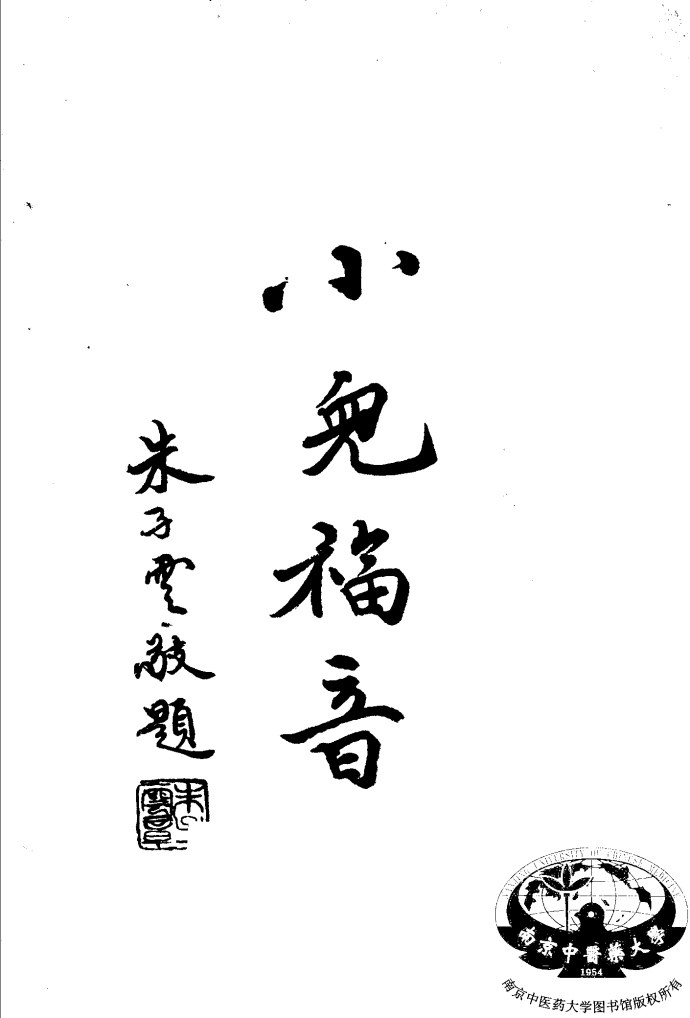 小兒福音
朱子雲敬題
NANJING UNIVERSITY OF CHINESE MEDICINE
南京中醫藥大學
1954
南京中医药大学图书馆版权所有